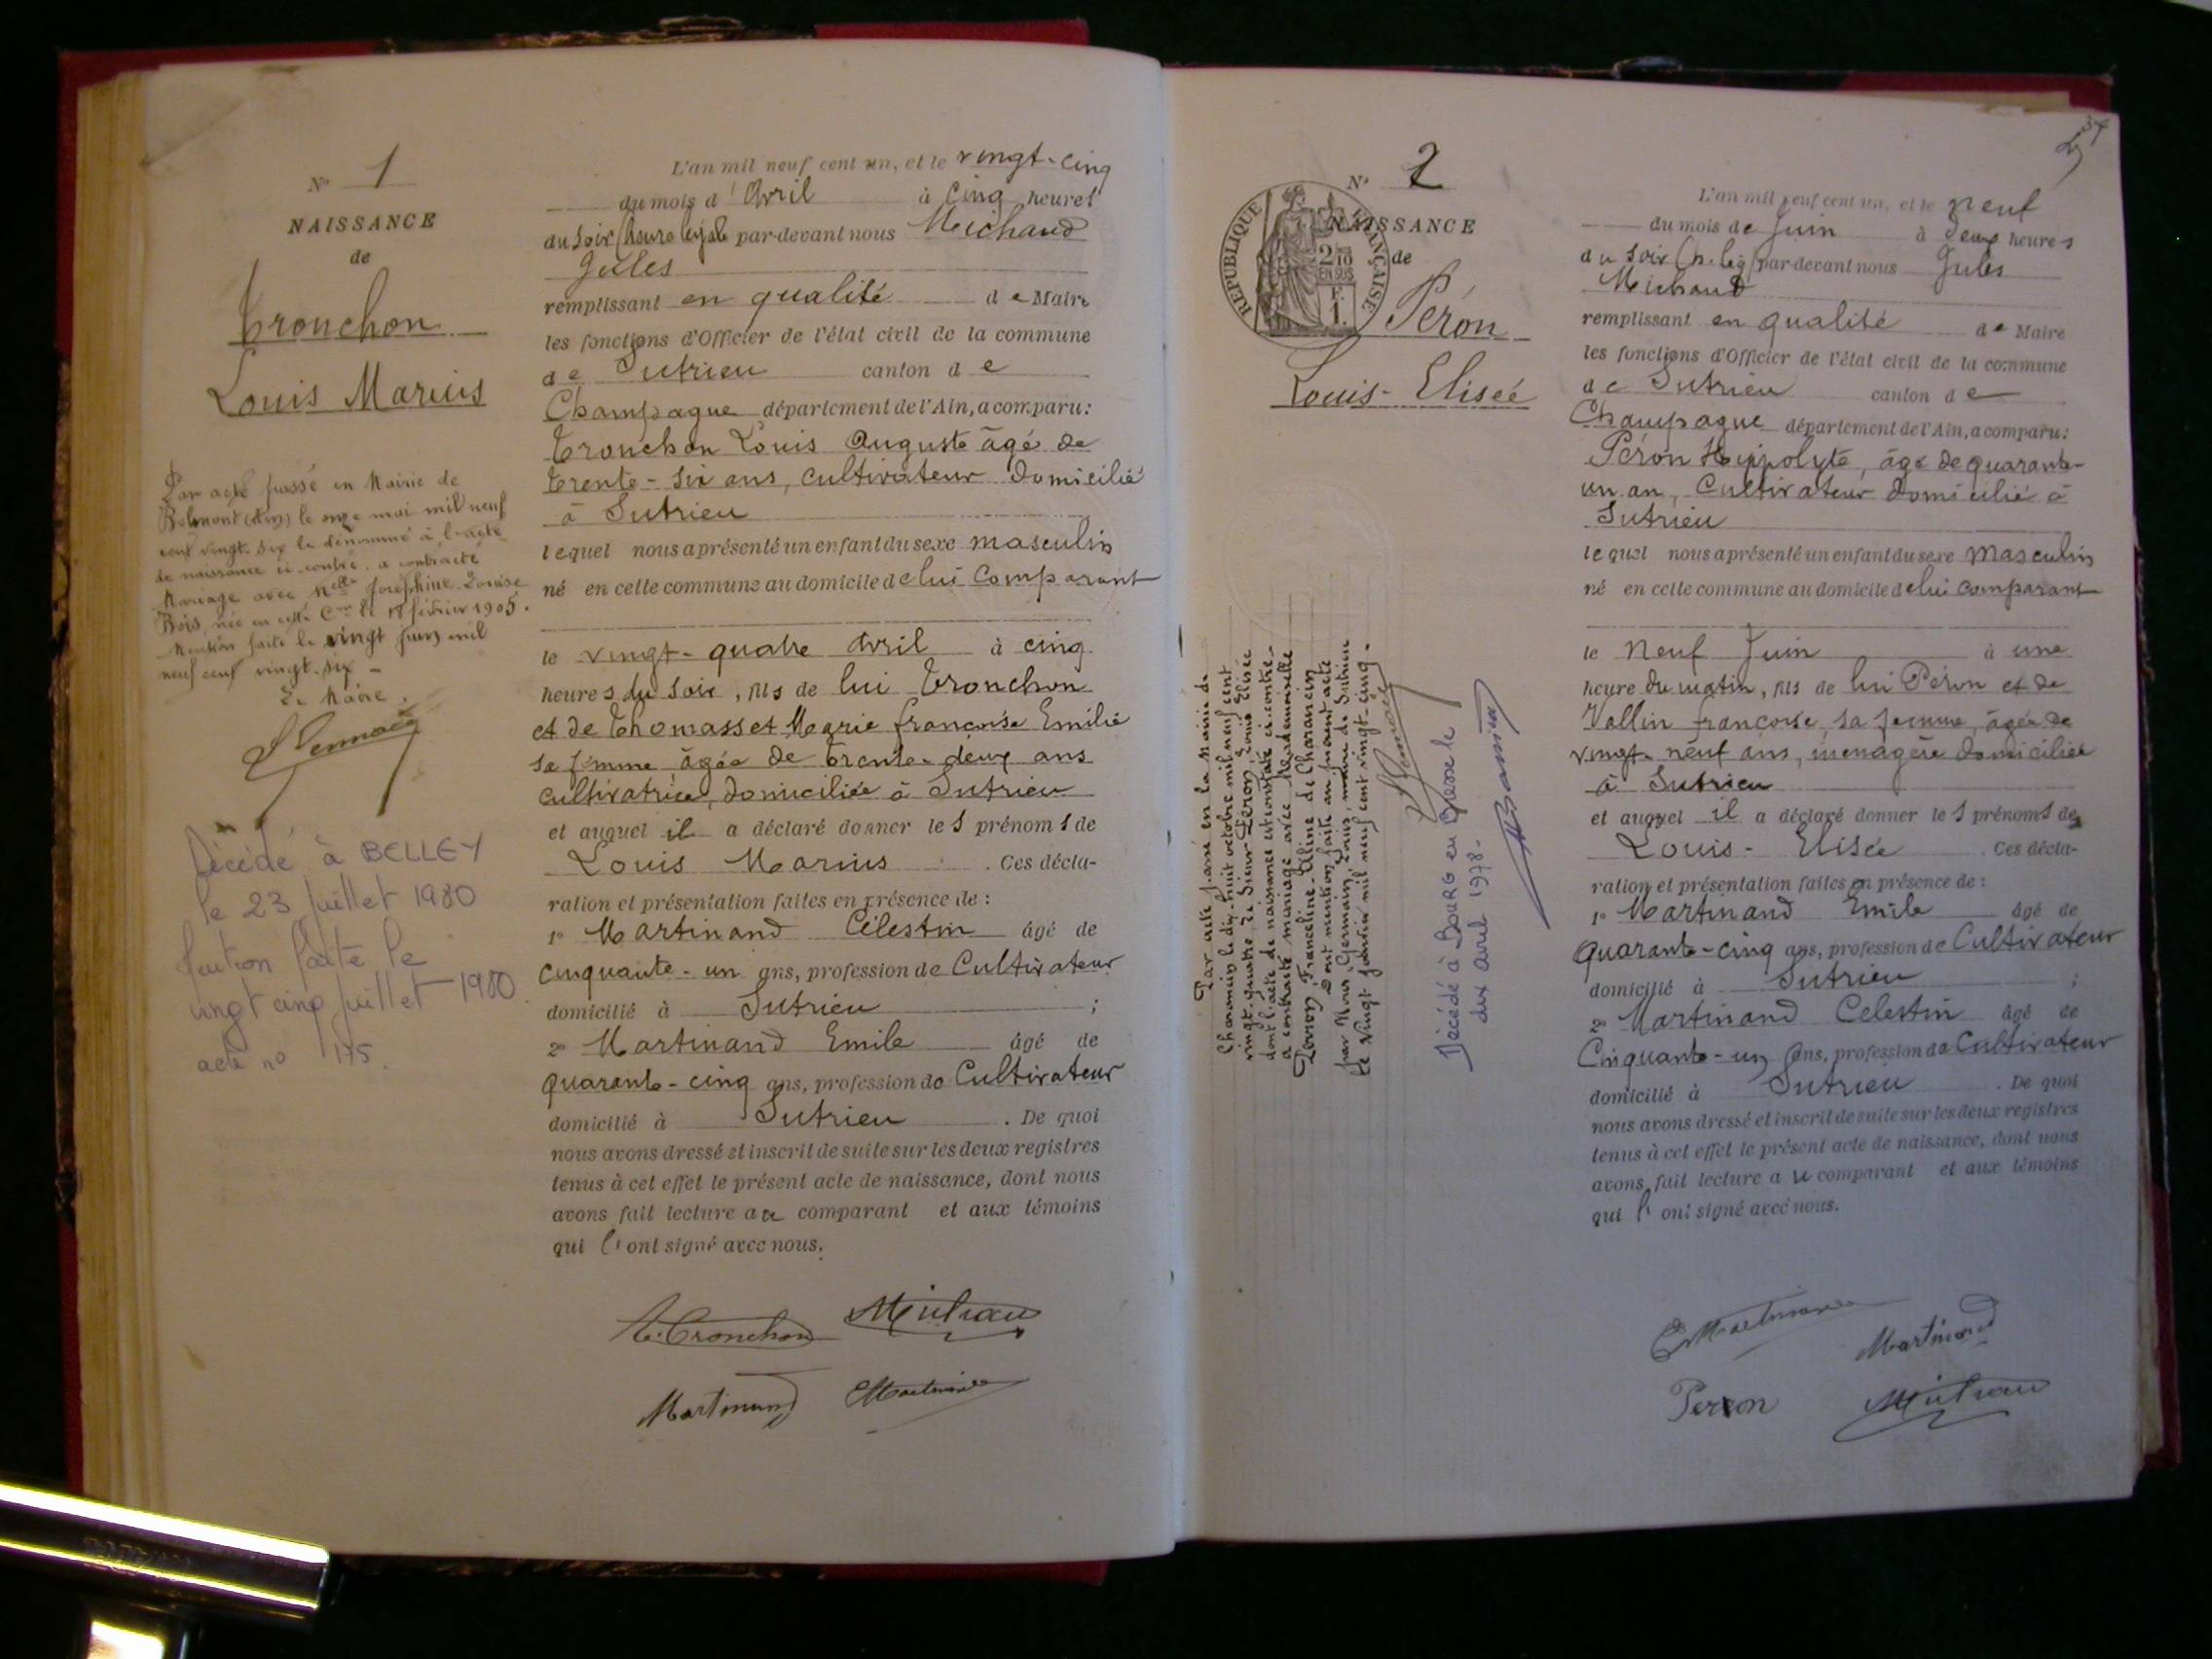 N° 1
NAISSANCE
de
Tronchon
Louis Marius
Par acte passé en Mairie de
Belmont (Ain) le onze mai mil neuf
cent vingt-six le dénommé à l'acte
de naissance ci-contre a contracté
Mariage avec Melle Joséphine Louise
Bois, née en cette Cne le 18 février 1905.
Mention faite le vingt juin mil
neuf cent vingt-six -
Le Maire.
Décédé à BELLEY
le 23 juillet 1980
Mention faite le
vingt cinq juillet 1980.
acte n° 175.
L'an mil neuf cent un, et le vingt-cinq
du mois d'Avril à Cinq heures
du Soir (heure légale par-devant nous Michaud
Jules
remplissant en qualité de Maire
les fonctions d'Officier de l'état civil de la commune
de Sutrieu canton de
Champagne département de l'Ain, a comparu:
Tronchon Louis Auguste âgé de
Trente-six ans, cultivateur domicilié
à Sutrieu
lequel nous a présenté un enfant du sexe masculin
né en cette commune au domicile de lui Comparant
le vingt-quatre Avril à cinq
heures du Soir, fils de lui Tronchon
et de Thomasset Marie françoise Emilie
sa femme âgée de trente-deux ans
cultivatrice, domiciliée à Sutrieu
et auquel il a déclaré donner les prénoms de
Louis Marius . Ces décla-
ration et présentation faites en présence de:
1° Martinand Célestin âgé de
cinquante-un ans, profession de Cultivateur
domicilié à Sutrieu ;
2° Martinand Emile âgé de
quarante-cinq ans, profession de Cultivateur
domicilié à Sutrieu . De quoi
nous avons dressé et inscrit de suite sur les deux registres
tenus à cet effet le présent acte de naissance, dont nous
avons fait lecture au comparant et aux témoins
qui l'ont signé avec nous.
L. Tronchon
Martinand EMartinand
37
N° 2
NAISSANCE
de
REPUBLIQUE FRANÇAISE
2/10
EN SUS
F.
1.
Péron
Louis-Elisée
Par acte passé en la Mairie de
Charancin le dix-huit octobre mil neuf cent
vingt-quatre, le Sieur Peron, Louis Elisée
dont l'acte de naissance est constaté ci-contre
a contracté mariage avec Mademoiselle
Perron, Francéline-Céline de Charancin
Dont mention faite au présent acte
par Nous, Germain, Louis, maire de Sutrieu
le vingt janvier mil neuf cent vingt-cinq.
Décédé à BOURG en Bresse le
dix avril 1978-
L'an mil neuf cent un, et le neuf
du mois de Juin à deux heures
du Soir (h. lég) par-devant nous Jules
Michaud
remplissant en qualité de Maire
les fonctions d'Officier de l'état civil de la commune
de Sutrieu canton de
Champagne département de l'Ain, a comparu:
Péron Hippolyte, âgé de quarante-
un an, Cultivateur domicilié à
Sutrieu
lequel nous a présenté un enfant du sexe Masculin
né en cette commune au domicile de lui comparant
le Neuf Juin à une
heure du matin, fils de lui Péron et de
Vallin françoise, sa femme, âgée de
vingt-neuf ans, ménagère domiciliée
à Sutrieu
et auquel il a déclaré donner les prénoms de
Louis-Elisée . Ces décla-
ration et présentation faites en présence de:
1° Martinand Emile âgé de
quarante-cinq ans, profession de Cultivateur
domicilié à Sutrieu ;
2° Martinand Celestin âgé de
Cinquante-un ans, profession de Cultivateur
domicilié à Sutrieu . De quoi
nous avons dressé et inscrit de suite sur les deux registres
tenus à cet effet le présent acte de naissance, dont nous
avons fait lecture au comparant et aux témoins
qui l'ont signé avec nous.
EMartinand
Martinand
Perron